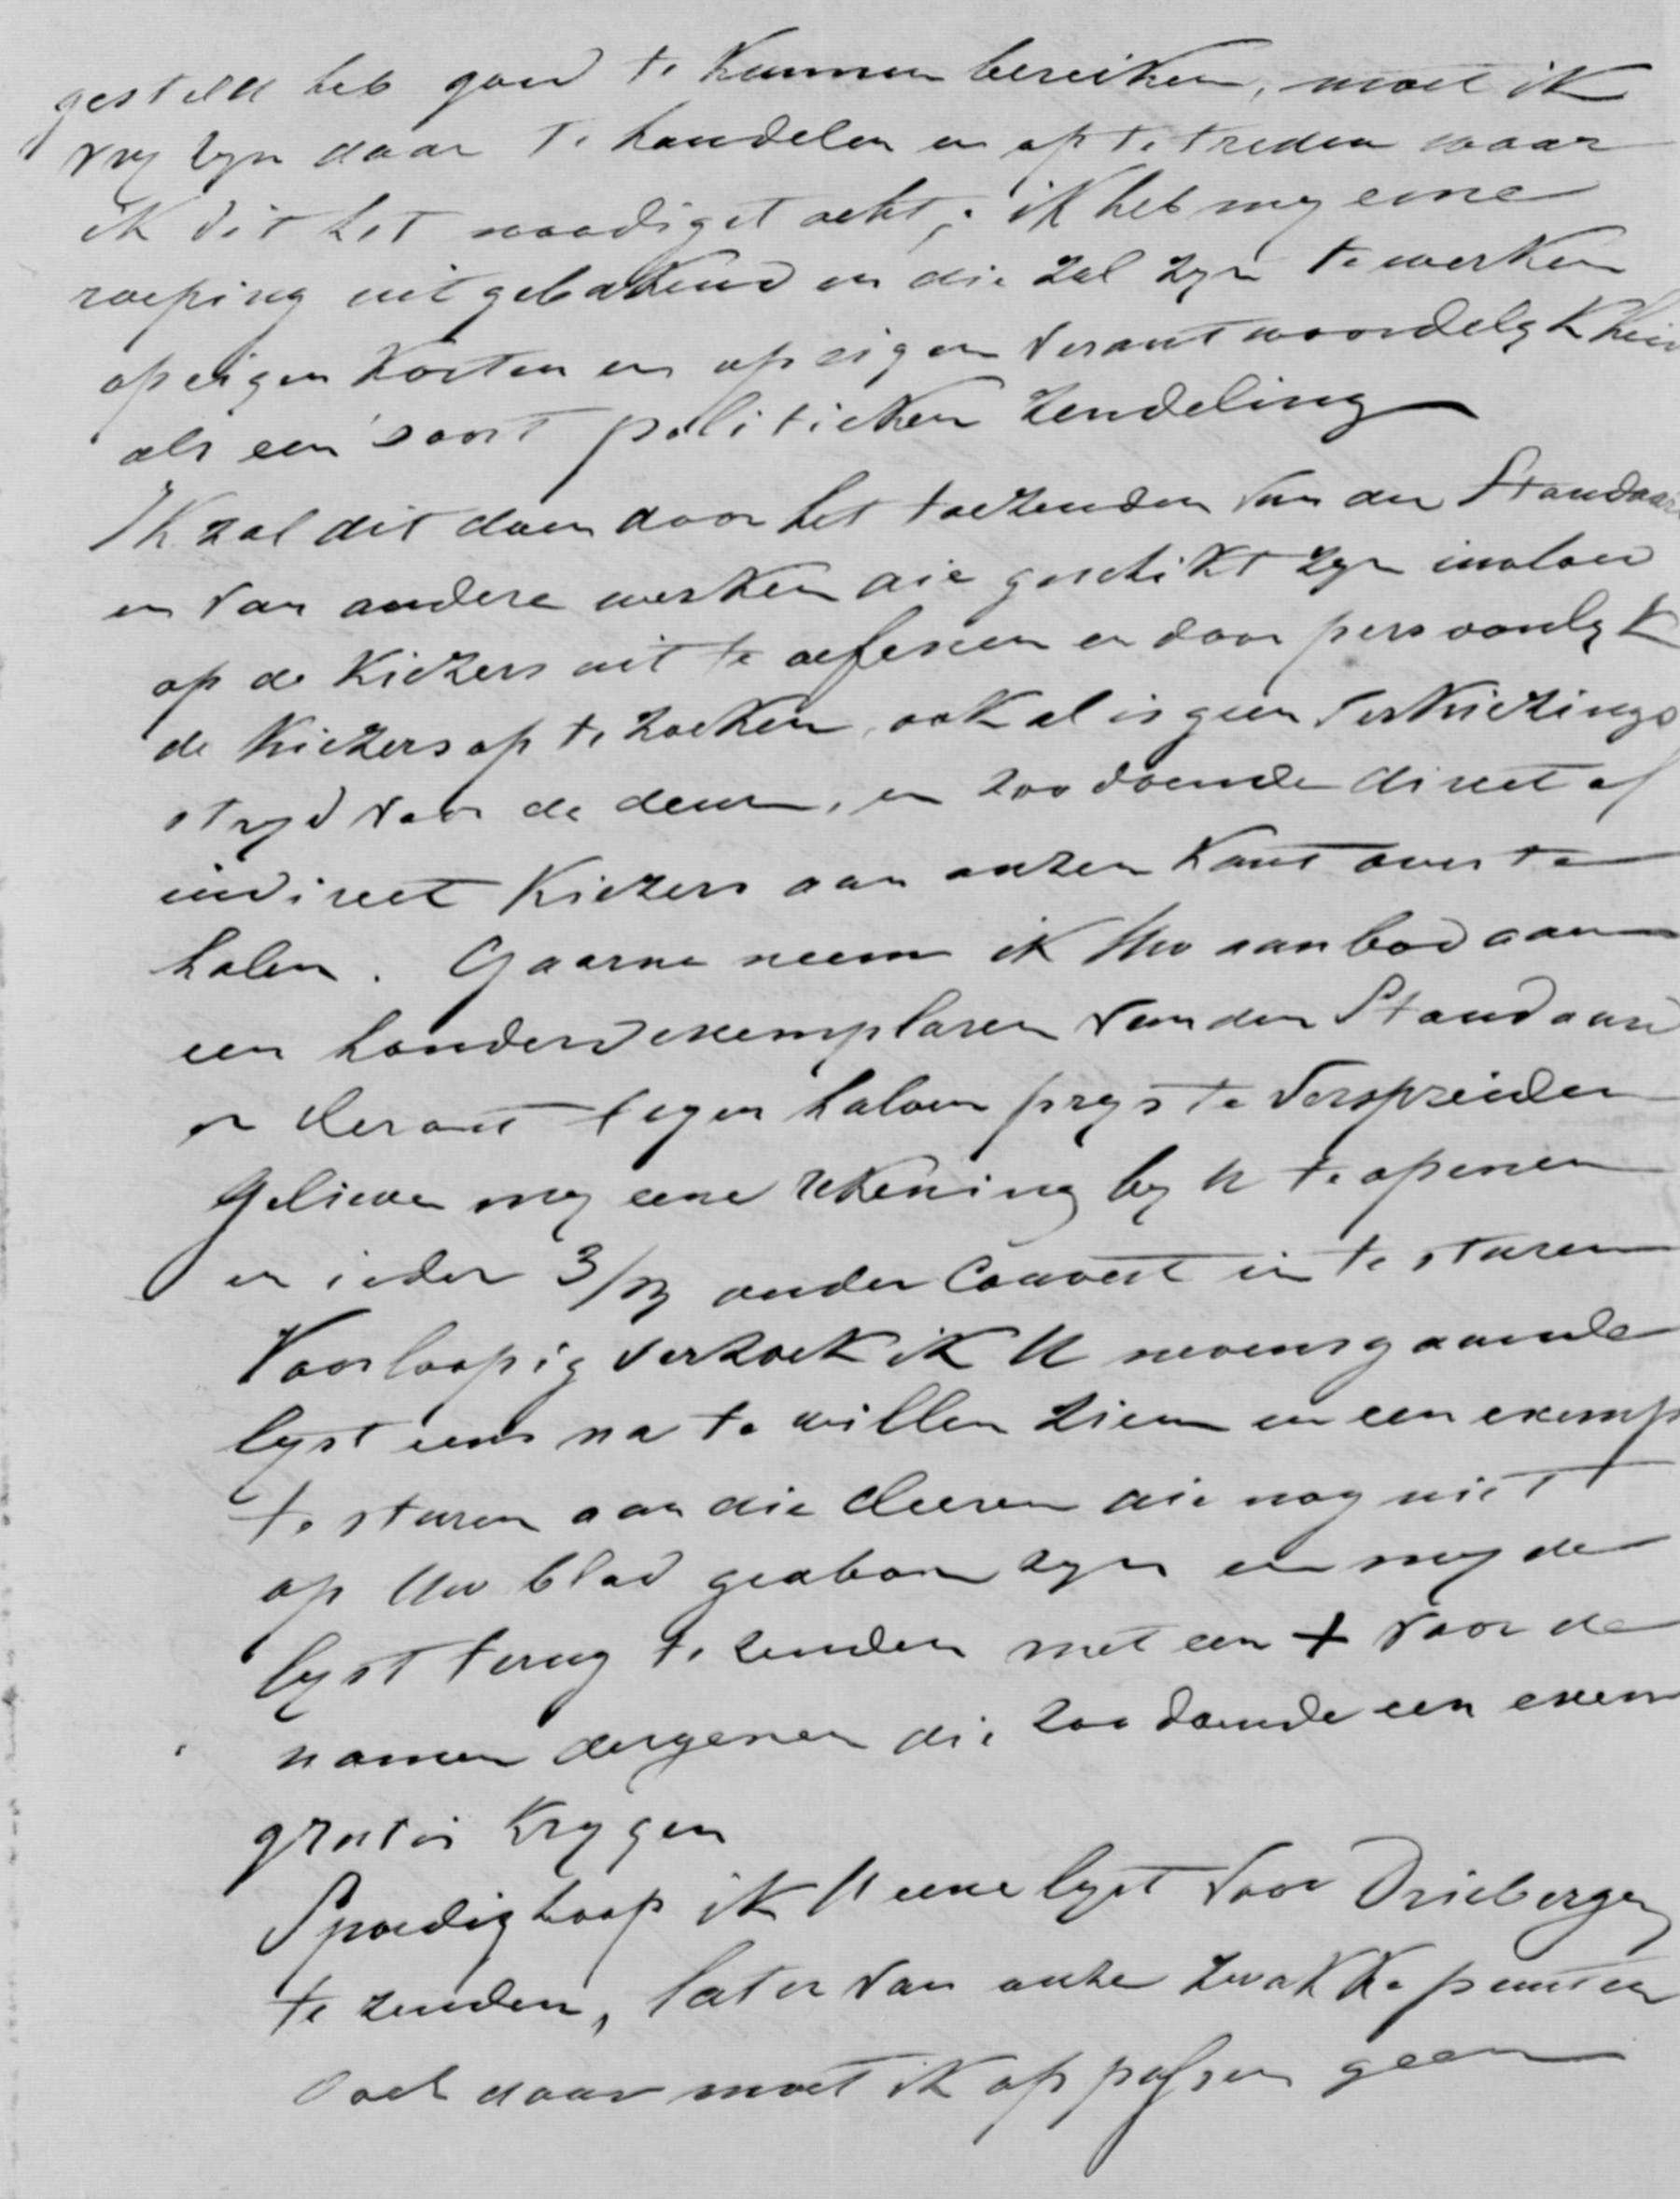 gesteld heb goed te kunnen bereiken, moet ik
vry zyn daar te handelen en op te treden waar
ik dit het noodigst acht; ik heb my eene
roeping uitgebakend en die zal zyn te werken
op eigen kosten en op eigen verantwoordelykheid
als een soort politieken zendeling
Ik zal dit doen door het toezenden van den Standaard
en van andere werken die geschikt zyn invloed
op de kiezers uit te oefenen en door persoonlyk
de kiezers op te zoeken, ook al is geen verkiezings
stryd voor de deur, en zoodoende direct of
indirect kiezers aan onzen kant over te
halen. Gaarne neem ik Uw aanbod aan
een honderd exemplaren van den Standaard
en Heraut tegen halven prys te verspreiden
Gelieve my eene rekening by U te openen
en ieder 3/m onder Couvert in te sturen
Voorloopig verzoek ik U nevensgaande
lyst eens na te willen zien en een exemp
te sturen aan die Heeren die nog niet
op Uw blad geabon zyn en my de
lyst terug te zenden met een + voor de
namen dergenen die zoodoende een exem
gratis krygen
Spoedig hoop ik U eene lyst voor Driebergen
te zenden, later van onze zwakke punten
doch daar moet ik oppassen geen